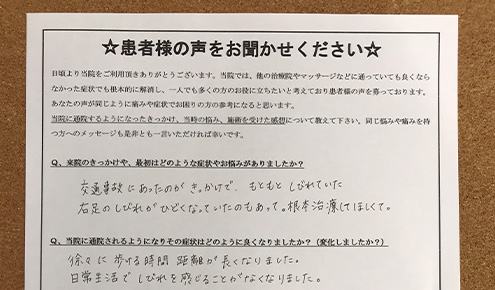 ☆患者様の声をお聞かせください☆
日頃より当院をご利用頂きありがとうございます。当院では、他の治療院やマッサージなどに通っていても良くなら
なかった症状でも根本的に解消し、一人でも多くの方のお役に立ちたいと考えており患者様の声を募っております。
あなたの声が同じように痛みや症状でお困りの方の参考になると思います。
当院に通院するようになったきっかけ、当時の悩み、施術を受けた感想について教えて下さい。同じ悩みや痛みを持
つ方へのメッセージも是非とも一言いただければ幸いです。
Q、来院のきっかけや、最初はどのような症状やお悩みがありましたか?
交通事故にあったのがきっかけで、もともとしびれていた
右足のしびれがひどくなっていたのもあって。根本治療してほしくて。
Q、当院に通院されるようになりその症状はどのように良くなりましたか?(変化しましたか?)
徐々に歩ける時間 距離が長くなりました。
日常生活でしびれを感じることがなくなりました。